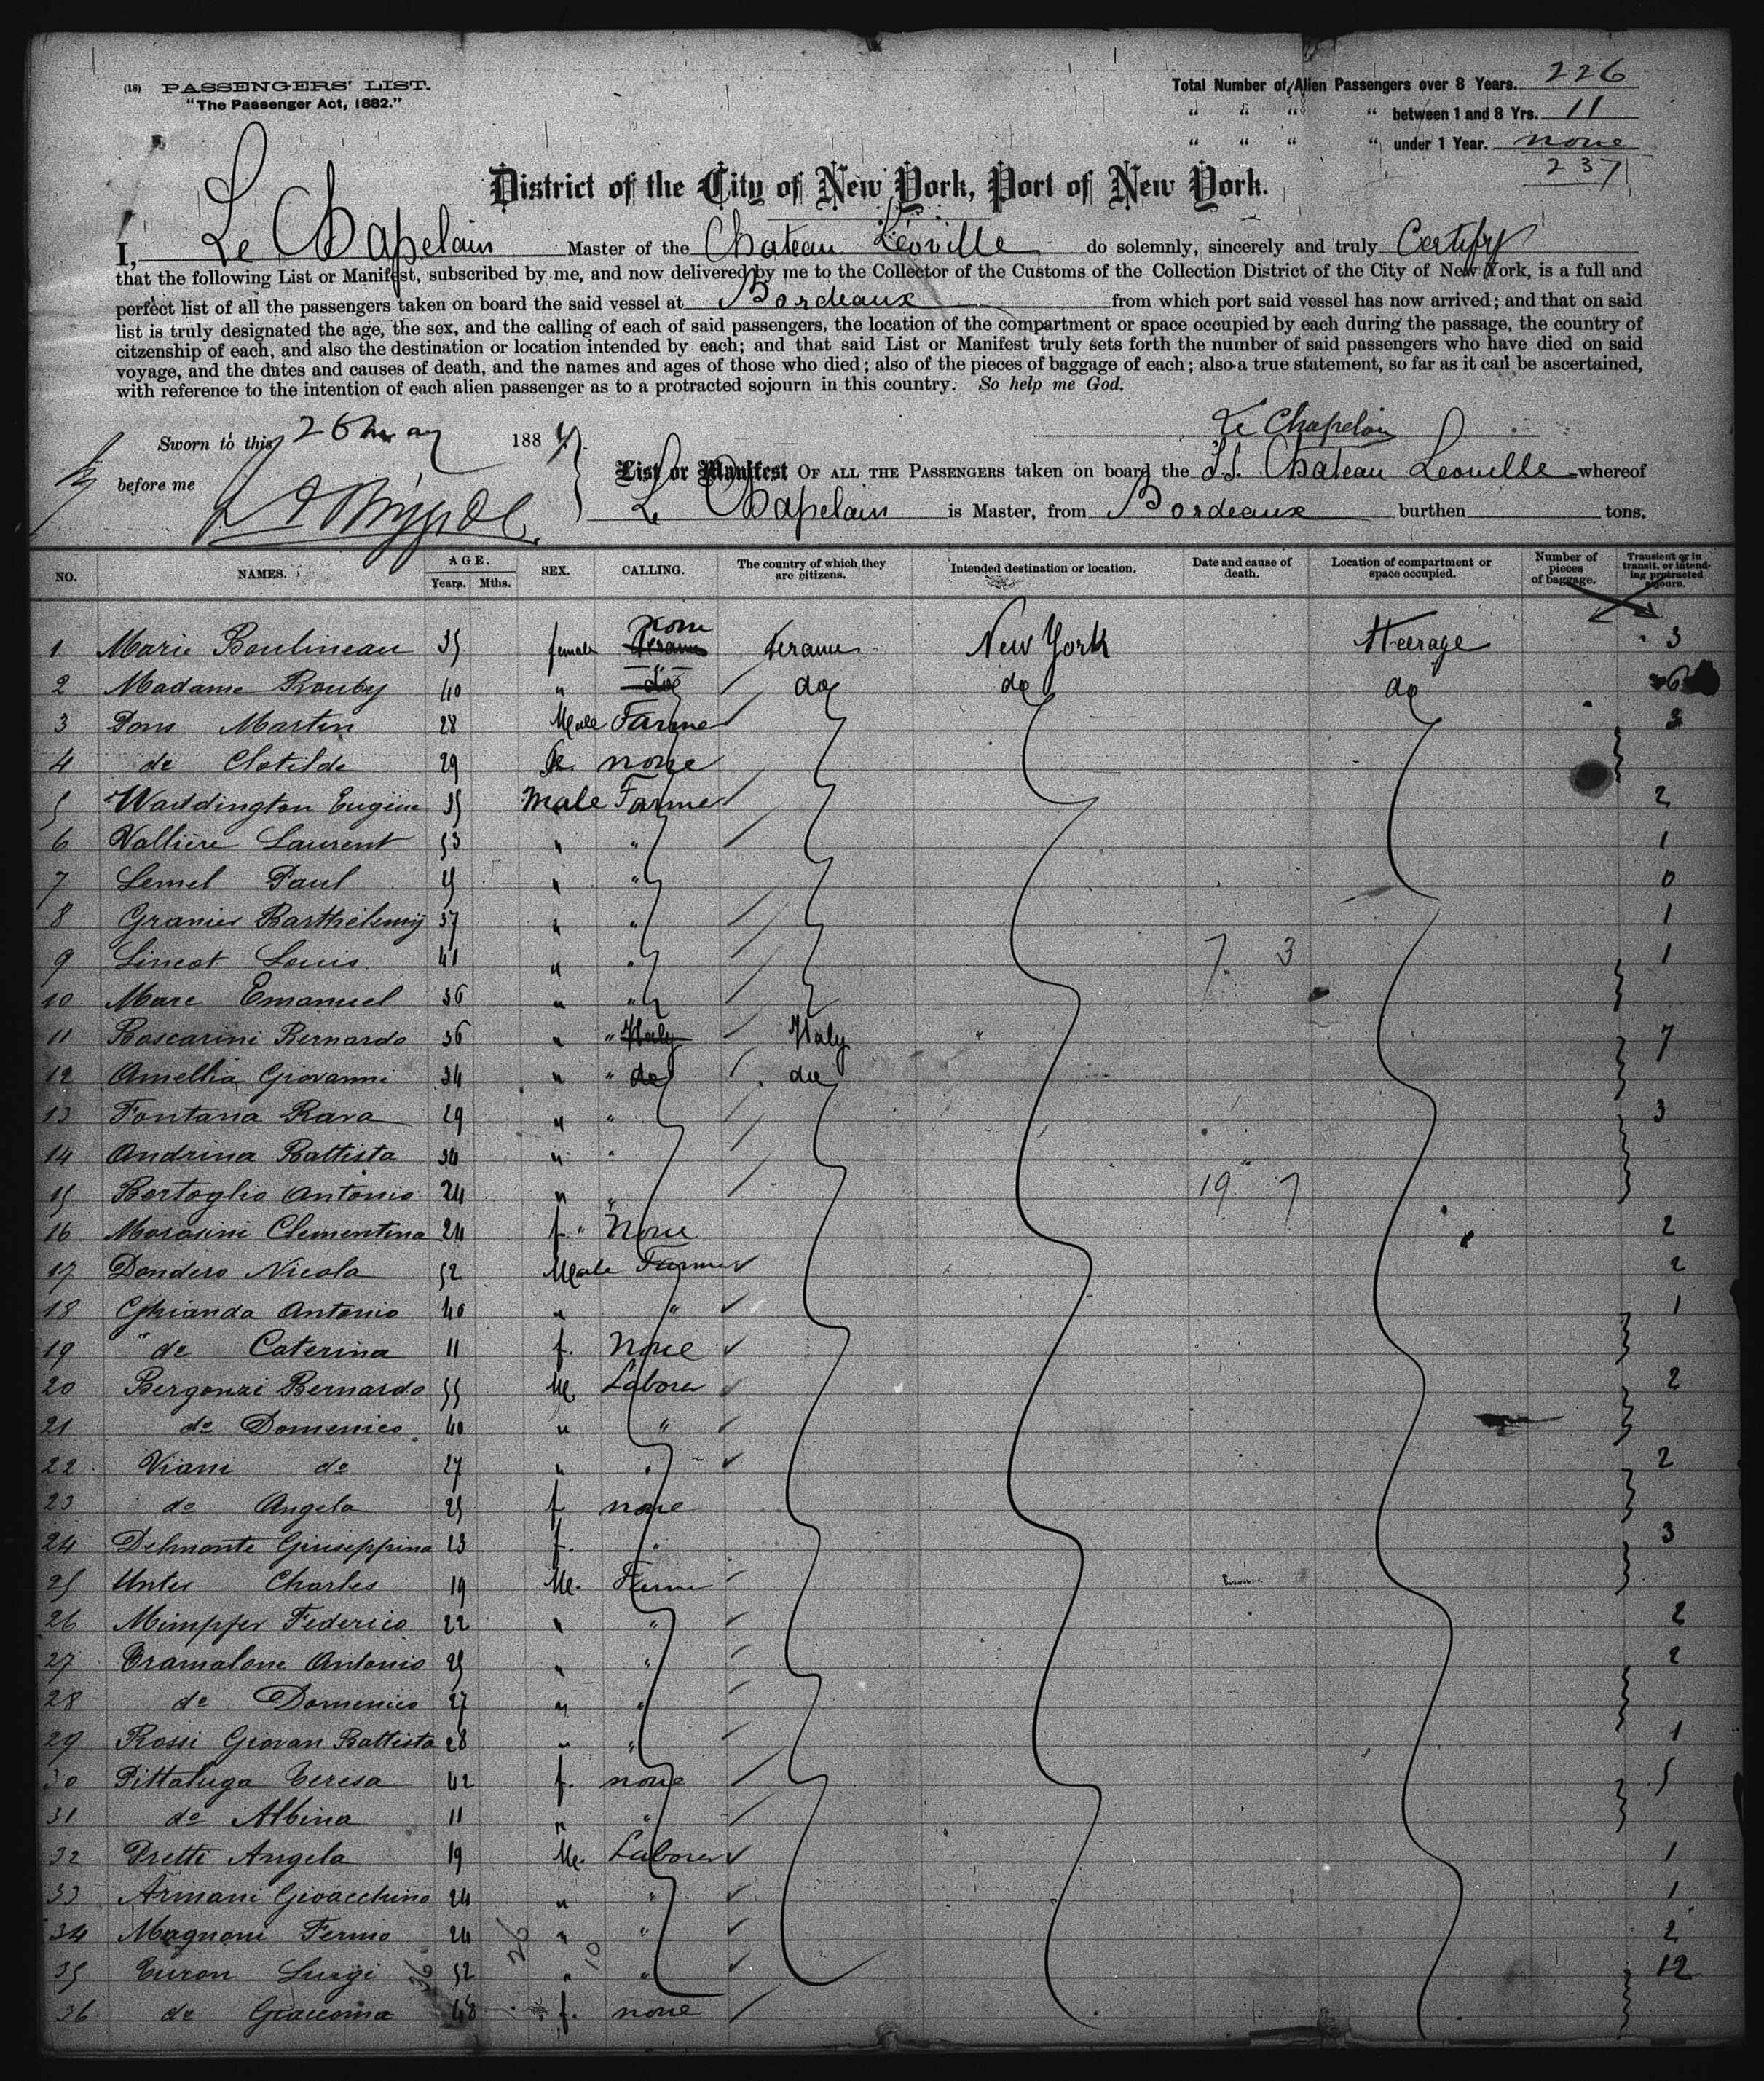 (18) PASSENGERS' LIST.
"The Passenger Act, 1882."
Total Number of Alien Passengers over 8 Years. 226
" " " " between 1 and 8 Yrs. 11
" " " " under 1 Year. none
237
District of the City of New York, Port of New York.
I, Le Chapelain Master of the Chateau Léoville do solemnly, sincerely and truly Certify
that the following List or Manifest, subscribed by me, and now delivered by me to the Collector of the Customs of the Collection District of the City of New York, is a full and
perfect list of all the passengers taken on board the said vessel at Bordeaux from which port said vessel has now arrived; and that on said
list is truly designated the age, the sex, and the calling of each of said passengers, the location of the compartment or space occupied by each during the passage, the country of
citzenship of each, and also the destination or location intended by each; and that said List or Manifest truly sets forth the number of said passengers who have died on said
voyage, and the dates and causes of death, and the names and ages of those who died; also of the pieces of baggage of each; also a true statement, so far as it can be ascertained,
with reference to the intention of each alien passenger as to a protracted sojourn in this country. So help me God.
Le Chapelain
Sworn to this 26 May 188
before me
List or Manifest OF ALL THE PASSENGERS taken on board the S.S. Chateau Leoville whereof
Le Chapelain is Master, from Bordeaux burthen tons.
NO. NAMES. AGE. Years. Mths. SEX. CALLING. The country of which they are citizens. Intended destination or location. Date and cause of death. Location of compartment or space occupied. Number of pieces of baggage. Transient or in transit, or intending protracted sojourn.
1 Marie Boulineau 35 female none New York Steerage 3
2 Madame Rouby 40 " do do do do 6
3 Pons Martin 28 Male Farmer 3
4 do Clotilde 29 none
5 Waddington Eugène 35 Male Farmer 2
6 Vallière Laurent 53 " " 1
7 Lemel Paul " " 0
8 Granier Barthélemy 37 " " 1
9 Lincot Louis 41 " " 7 3 1
10 Marc Emanuel 36 " "
11 Boscarini Bernardo 36 " " Italy Italy 7
12 Amellia Giovanni 34 " " do do
13 Fontana Rara 29 " " 3
14 Andrina Battista 34 " "
15 Bertoglio Antonio 24 " " 19 7
16 Morasini Clementina 24 f. " None 2
17 Dondero Nicola 52 Male Farmer 2
18 Ghianda Antonio 40 " " 1
19 " do Caterina 11 f. None
20 Bergonzi Bernardo 55 M. Laborer 2
21 do Domenico 40 " "
22 Viani do 27 " " 2
23 do Angela 25 f. none
24 Delmonte Giuseppina 23 f. " 3
25 Unter Charles 19 M. Farmer
26 Mimpfer Federico 22 " " 2
27 Tramalone Antonio 25 " " 2
28 do Domenico 27 " "
29 Rossi Giovan Battista 28 " " 1
30 Pittaluga Teresa 42 f. none 5
31 do Albina 11 " "
32 Pretti Angelo 19 M. Laborer 1
33 Armani Gioacchino 24 " " 1
34 Magnoni Fermo 24 " " 2
35 Turon Luigi 52 " " 12
36 do Giacoma 48 f. none
36 26 10